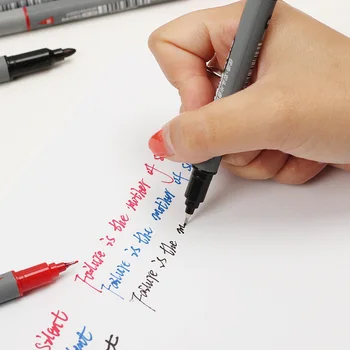 Failure is the mother of s
Failure is the mother of s
Failure is the m
Silent